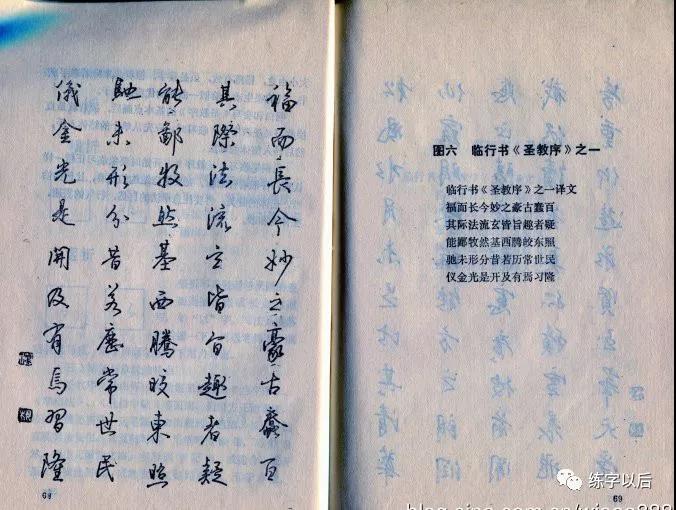 福而長今妙之豪古蠢百
其際法流玄皆旨趣者疑
能鄙牧然基西騰皎東照
馳未形分昔若歷常世民
儀金光是開及有焉習隆
68
图六 临行书《圣教序》之一
临行书《圣教序》之一译文
福而长今妙之豪古蠢百
其际法流玄皆旨趣者疑
能鄙牧然基西腾皎东照
驰未形分昔若历常世民
仪金光是开及有焉习隆
69
练字以后